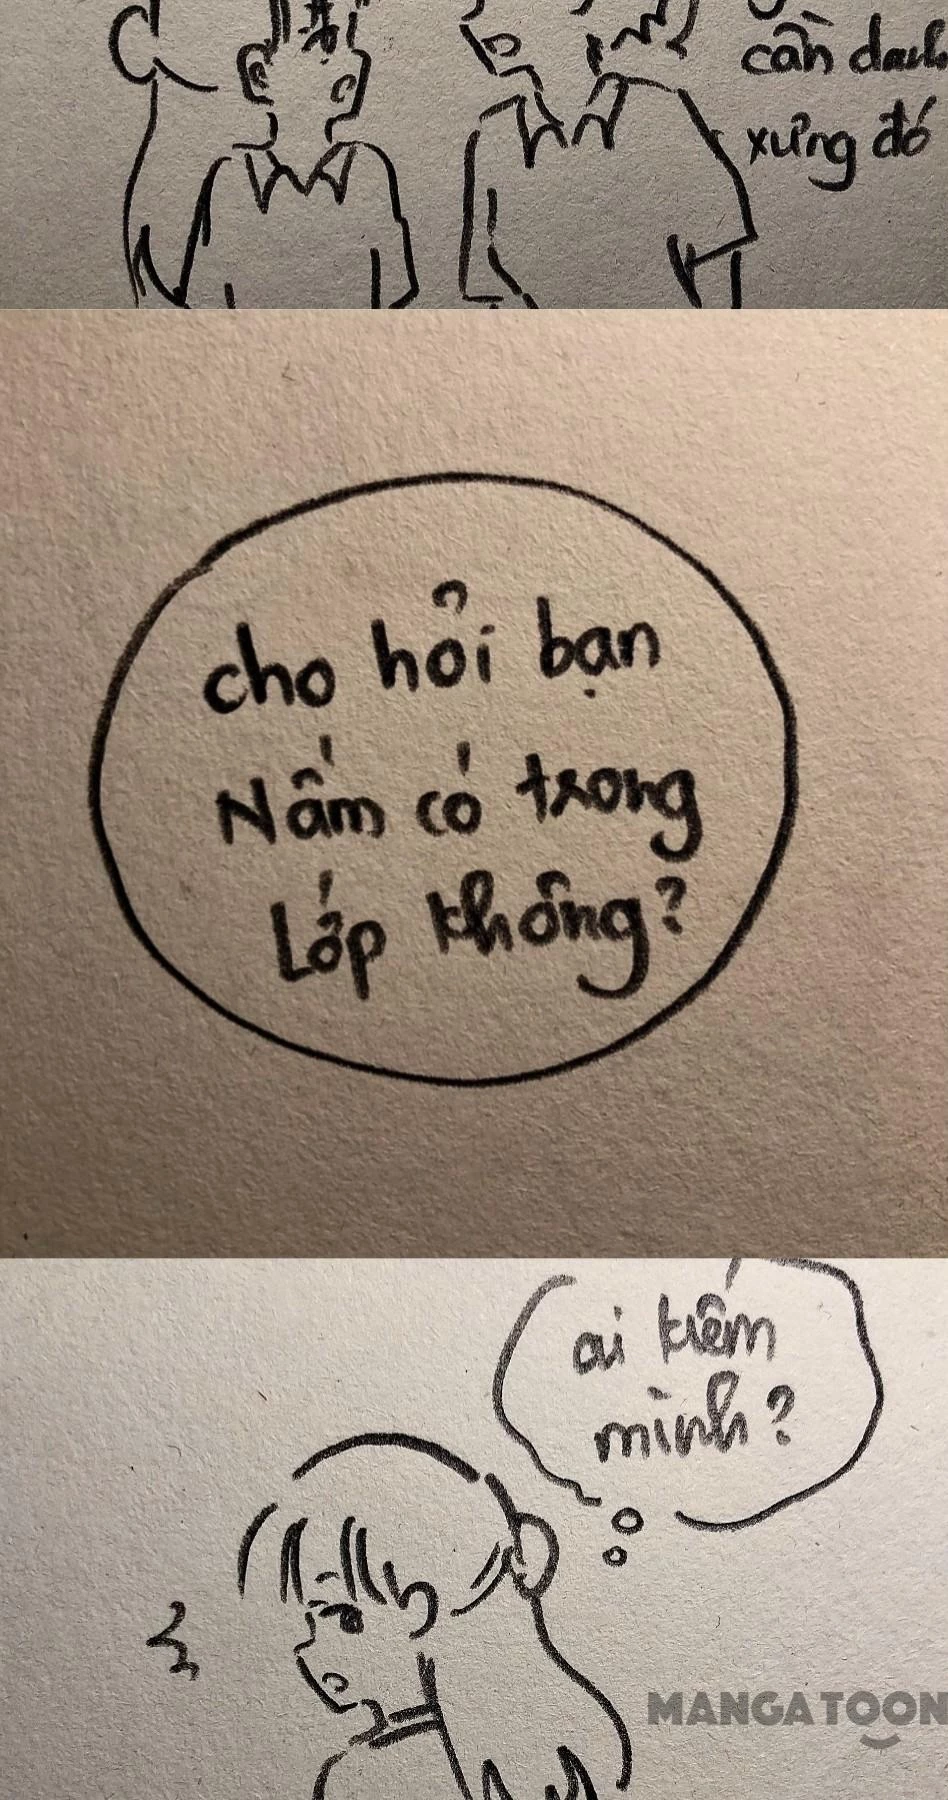 cần danh
xưng đó
cho hỏi bạn
Nấm có trong
Lớp không?
ai kiếm
mình?
MANGATOON